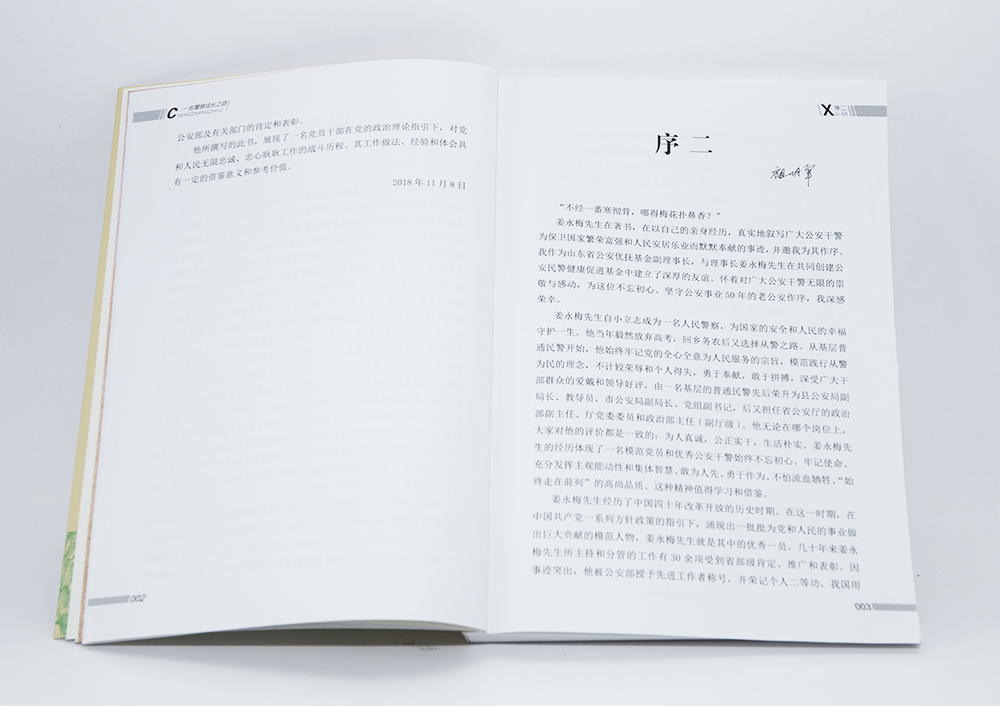 一名警察成长之路
CHENGZHANGZHILU
公安部及有关部门的肯定和表彰。
他所撰写的此书，展现了一名党员干部在党的政治理论指引下，对党
和人民无限忠诚、忠心耿耿工作的战斗历程。其工作做法、经验和体会具
有一定的借鉴意义和参考价值。
2018 年 11 月 8 日
002
X 序二
序 二
“不经一番寒彻骨，哪得梅花扑鼻香？”
姜永梅先生在著书，在以自己的亲身经历，真实地叙写广大公安干警
为保卫国家繁荣富强和人民安居乐业而默默奉献的事迹，并邀我为其作序。
我作为山东省公安优抚基金副理事长，与理事长姜永梅先生在共同创建公
安民警健康促进基金中建立了深厚的友谊。怀着对广大公安干警无限的崇
敬与感动，为这位不忘初心、坚守公安事业 50 年的老公安作序，我深感
荣幸。
姜永梅先生自小立志成为一名人民警察，为国家的安全和人民的幸福
守护一生。他当年毅然放弃高考，回乡务农后又选择从警之路。从基层普
通民警开始，他始终牢记党的全心全意为人民服务的宗旨，模范践行从警
为民的理念，不计较荣辱和个人得失，勇于奉献，敢于拼搏，深受广大干
部群众的爱戴和领导好评，由一名基层的普通民警先后荣升为县公安局副
局长、教导员，市公安局副局长、党组副书记，后又担任省公安厅的政治
部副主任、厅党委委员和政治部主任（副厅级）。他无论在哪个岗位上，
大家对他的评价都是一致的：为人真诚，公正实干，生活朴实。姜永梅先
生的经历体现了一名模范党员和优秀公安干警始终不忘初心、牢记使命、
充分发挥主观能动性和集体智慧、敢为人先、勇于作为、不怕流血牺牲、“始
终走在前列”的高尚品质。这种精神值得学习和借鉴。
姜永梅先生经历了中国四十年改革开放的历史时期。在这一时期，在
中国共产党一系列方针政策的指引下，涌现出一批批为党和人民的事业做
出巨大贡献的模范人物，姜永梅先生就是其中的优秀一员。几十年来姜永
梅先生所主持和分管的工作有 30 余项受到省部级肯定、推广和表彰。因
事迹突出，他被公安部授予先进工作者称号，并荣记个人二等功。我国用
003